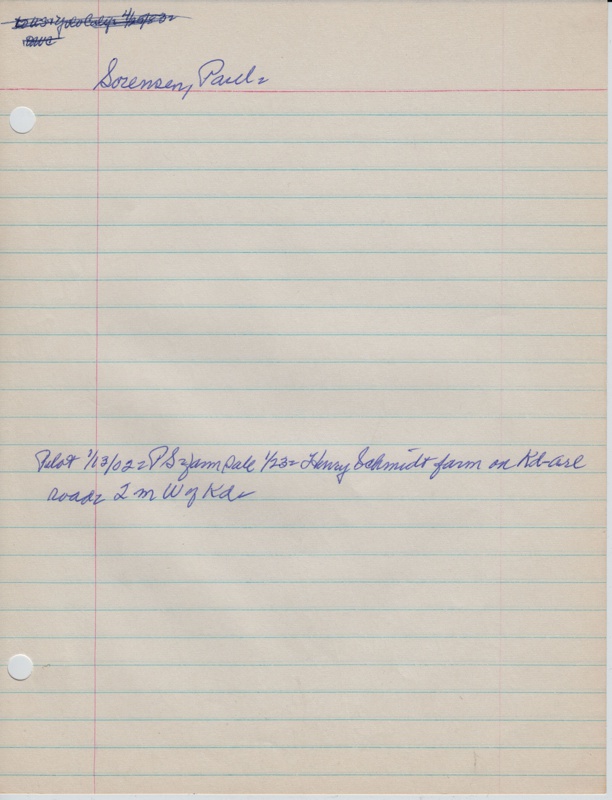 Sorensen, Paul=
Pilot 1/13/02= P S farm sale 1/23= Henry Schmidt farm on Kd-Arl
road= 2 m W of Kd=